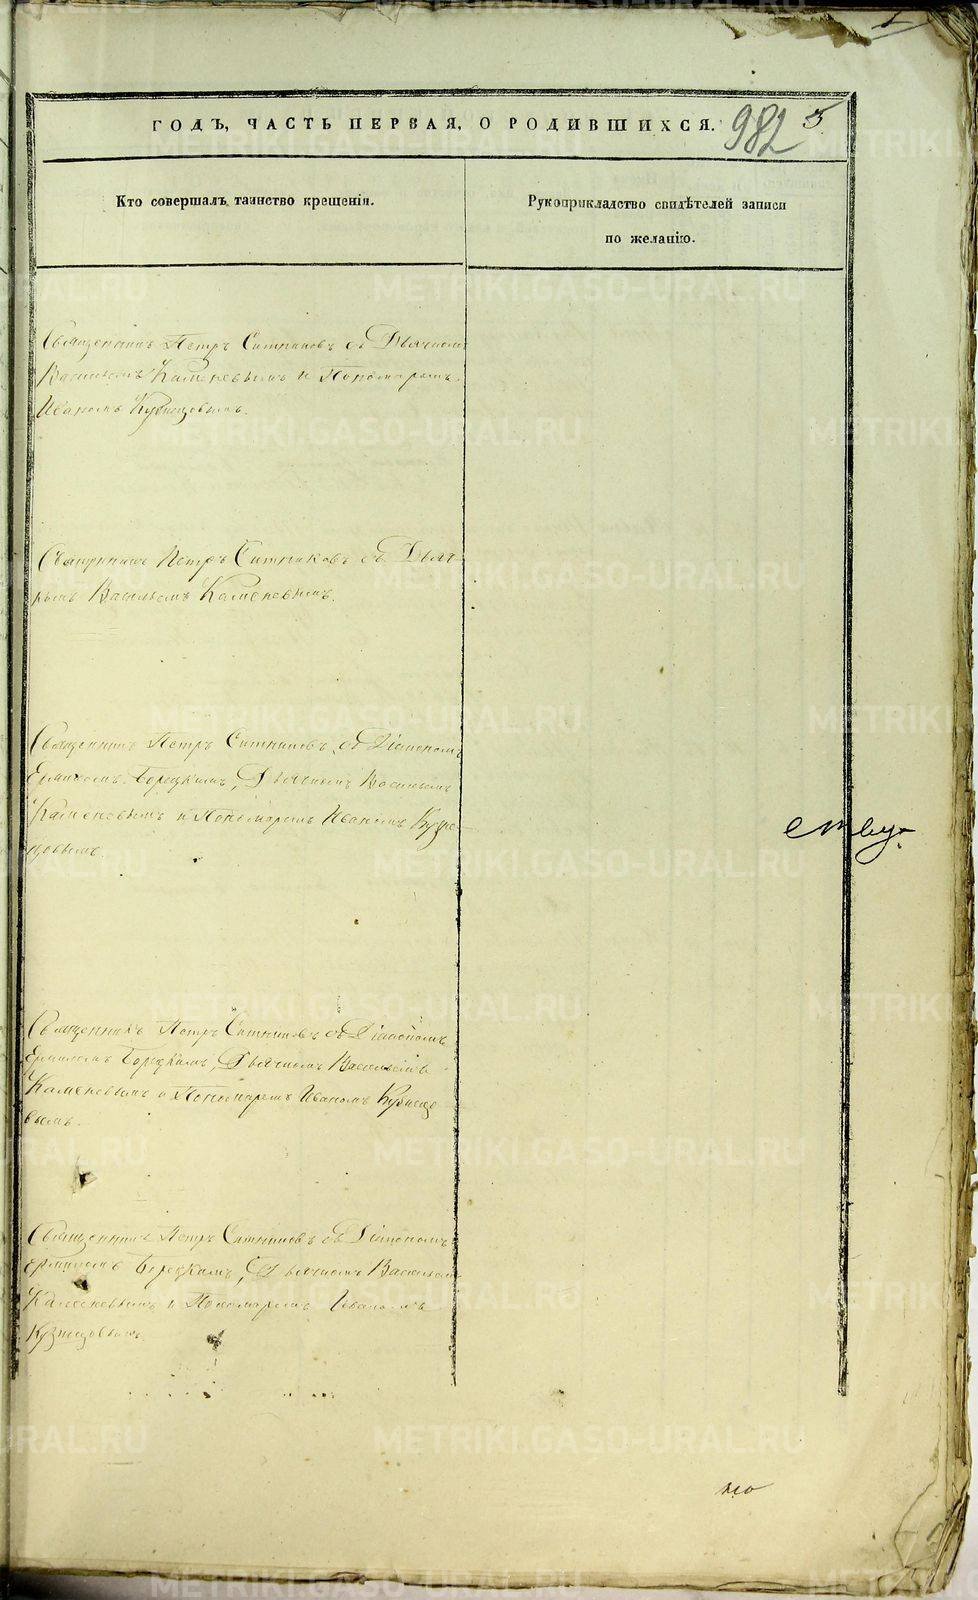 ГОДЪ, ЧАСТЬ ПЕРВАЯ, О РОДИВШИХСЯ.
982 5
Кто совершалъ таинство крещенія.
Рукоприкладство свидѣтелей записи
по желанію.
Священникъ Петръ Ситниковъ съ Дьячкомъ
Васильемъ Каменевымъ и Пономаремъ
Иваномъ Кузнецовымъ.
Священникъ Петръ Ситниковъ съ Дьяч-
комъ Васильемъ Каменевымъ.
Священникъ Петръ Ситниковъ съ Діакономъ
Ермиломъ Борецкимъ, Дьячкомъ Васильемъ
Каменевымъ и Пономаремъ Иваномъ Кузне-
цовымъ.
ству-
Священникъ Петръ Ситниковъ съ Діакономъ
Ермиломъ Борецкимъ, Дьячкомъ Васильемъ
Каменевымъ и Пономаремъ Иваномъ Кузнецо
вымъ.
Священникъ Петръ Ситниковъ съ Діакономъ
Ермиломъ Борецкимъ, Дьячкомъ Васильемъ
Каменевымъ и Пономаремъ Иваномъ
Кузнецовымъ.
METRIKI.GASO-URAL.RU